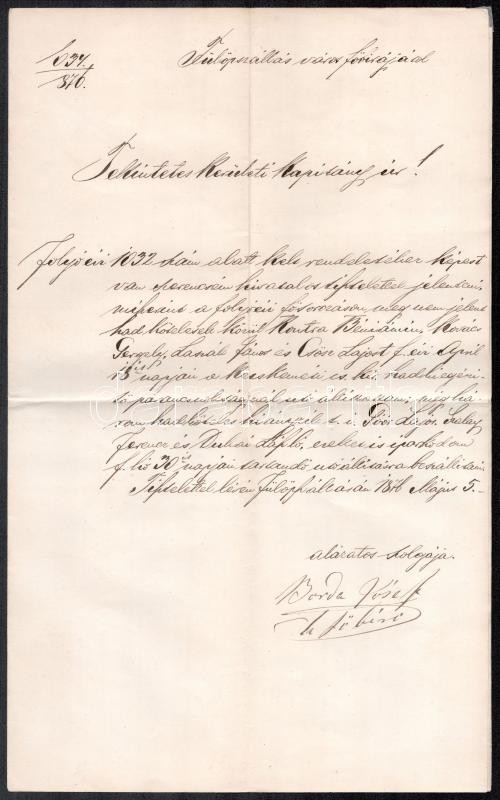 1037.
876.
Fülöpszállás város főbirájától
Tekintetes kerületi kapitány úr!
Folyó évi 1032 szám alatt kelt rendeletéhez képest
van szerencsém hivatalos tisztelettel jelenteni,
miszerint a folyó évi fősorozáson meg nem jelent
hadkötelesek közül Kontra Béniámin, Kovács
Gergely, László János és Csősz Lajost f. évi April
napján a kecskeméti cs. kir. hadkiegészi-
tő parancsnokságnál
Ferencz és László, ezeket is
f. hó 30 napján tartandó utóállitásra beállitani.
Tisztelettel lévén Fülöpszálláson 1876 Május 5.
alázatos szolgája.
Borda József
főbíró